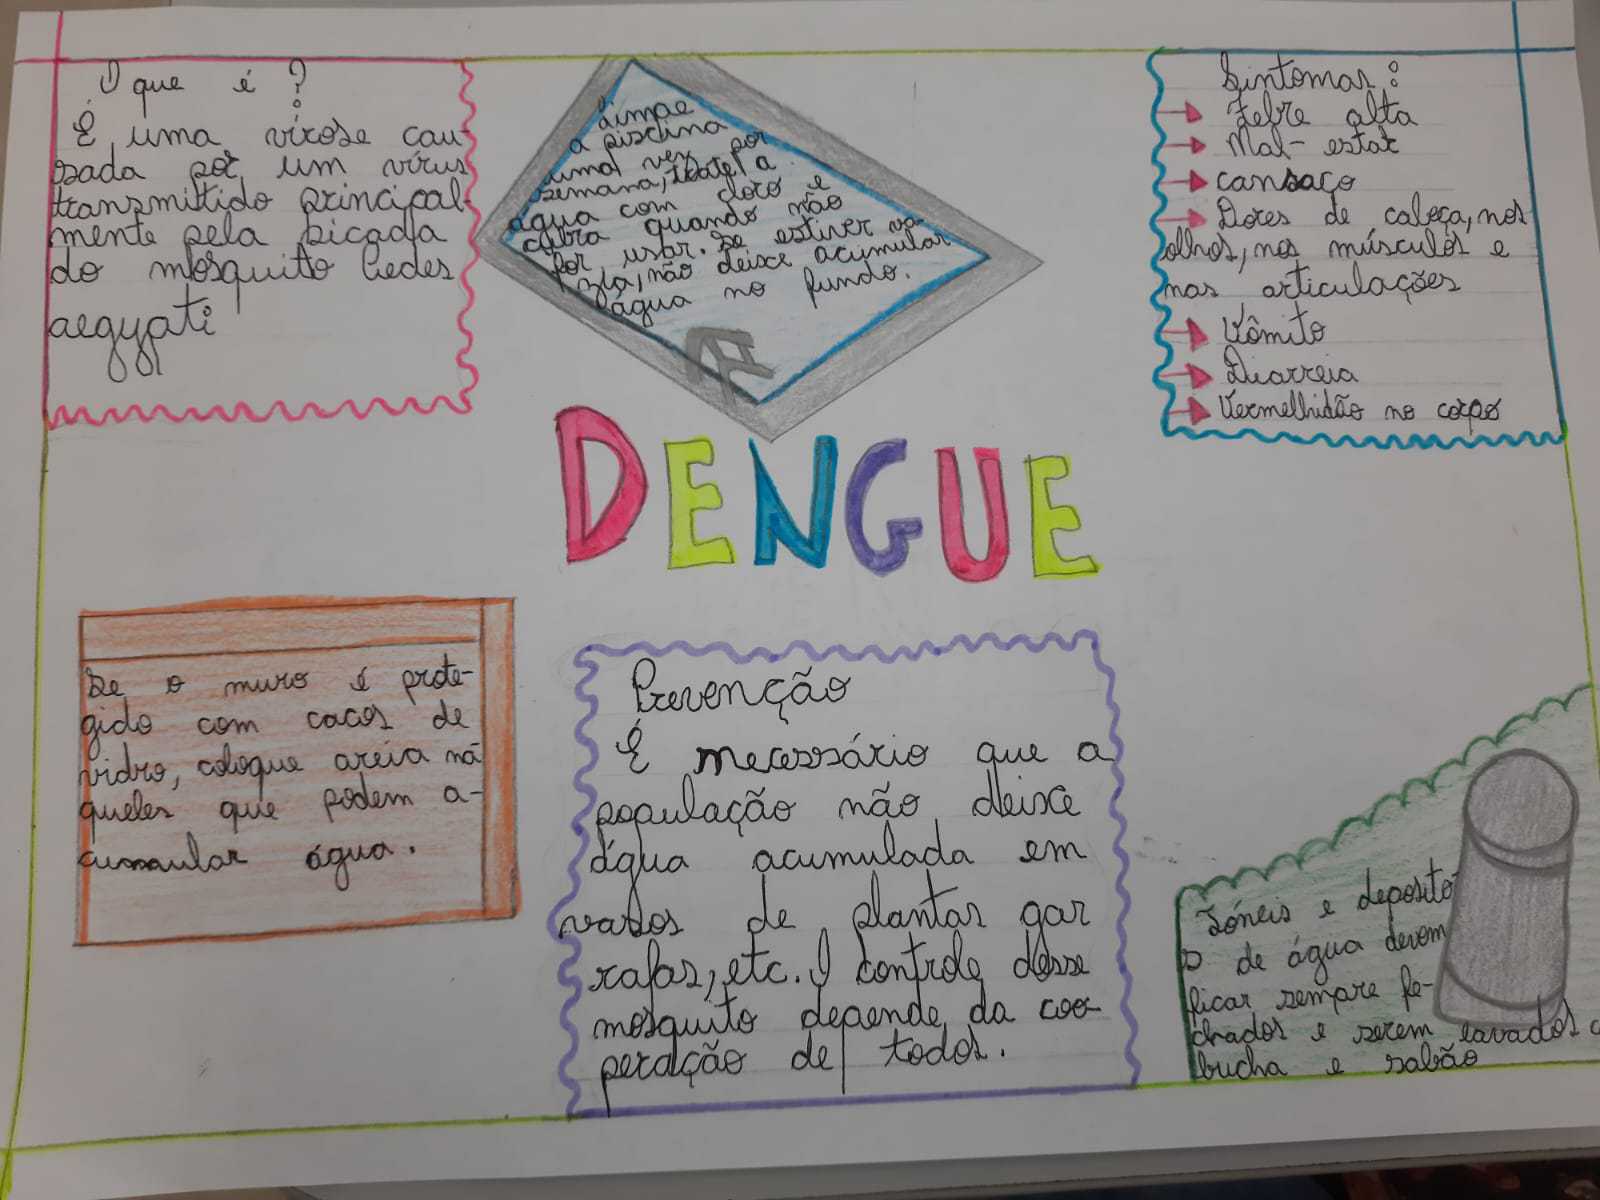 O que é ?
É uma virose cau-
sada por um vírus
transmitido principal-
mente pela picada
do mosquito Aedes
aegypti
Limpe
a piscina
uma vez por
semana, trate a
água com cloro e
cubra quando não
for usar. Se estiver va-
zia, não deixe acumular
água no fundo.
Sintomas:
Febre alta
Mal-estar
cansaço
Dores de cabeça, nos
olhos, nos músculos e
nas articulações
Vômito
Diarreia
Vermelhidão no corpo
DENGUE
Se o muro é prote-
gido com cacos de
vidro, coloque areia na
queles que podem a-
cumular água.
Prevenção
É necessário que a
população não deixe
água acumulada em
vasos de plantas gar
rafas, etc. O controle desse
mosquito depende da coo-
peração de todos.
Tóneis e deposito
s de água devem
ficar sempre fe-
chados e serem lavados c
bucha e sabão